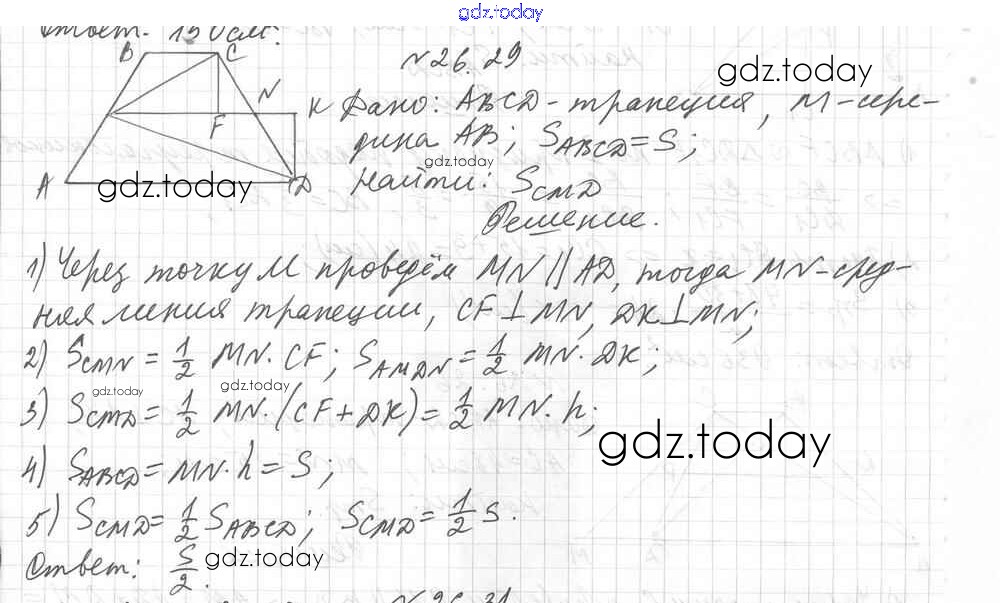 gdz.today
Ответ: 150см².
№26.29
B C N K F A D
gdz.today
Дано: ABCD-трапеция, M-сере-
дина AB; S_ABCD=S;
gdz.today
Найти: S_CMD
gdz.today
Решение.
1) Через точку M проведём MN || AD, тогда MN-сред-
няя линия трапеции, CF⊥MN, DK⊥MN;
2) S_CMN = 1/2 MN · CF; S_ΔMDN = 1/2 MN · DK;
gdz.today gdz.today
3) S_CMD = 1/2 MN · (CF + DK) = 1/2 MN · h;
gdz.today
4) S_ABCD = MN · h = S;
5) S_CMD = 1/2 S_ABCD; S_CMD = 1/2 S.
Ответ: S/2.
gdz.today
№26.31